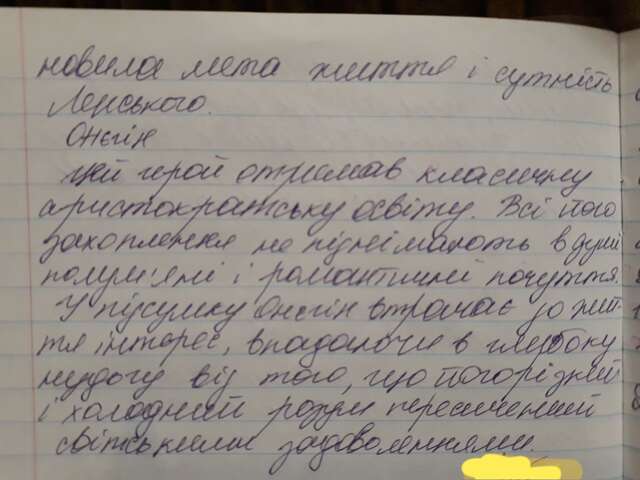 новила мета життя і сутність
Ленського.
Онєгін
Цей герой отримав класичну
аристократську освіту. Всі його
захоплення не піднімають в душі
полум'яні і романтичні почуття.
У підсумку Онєгін втрачає до жит-
тя інтерес, впадаючи в глибоку
нудогу від того, що його різкий
і холодний розум пересичений
світськими задоволеннями.